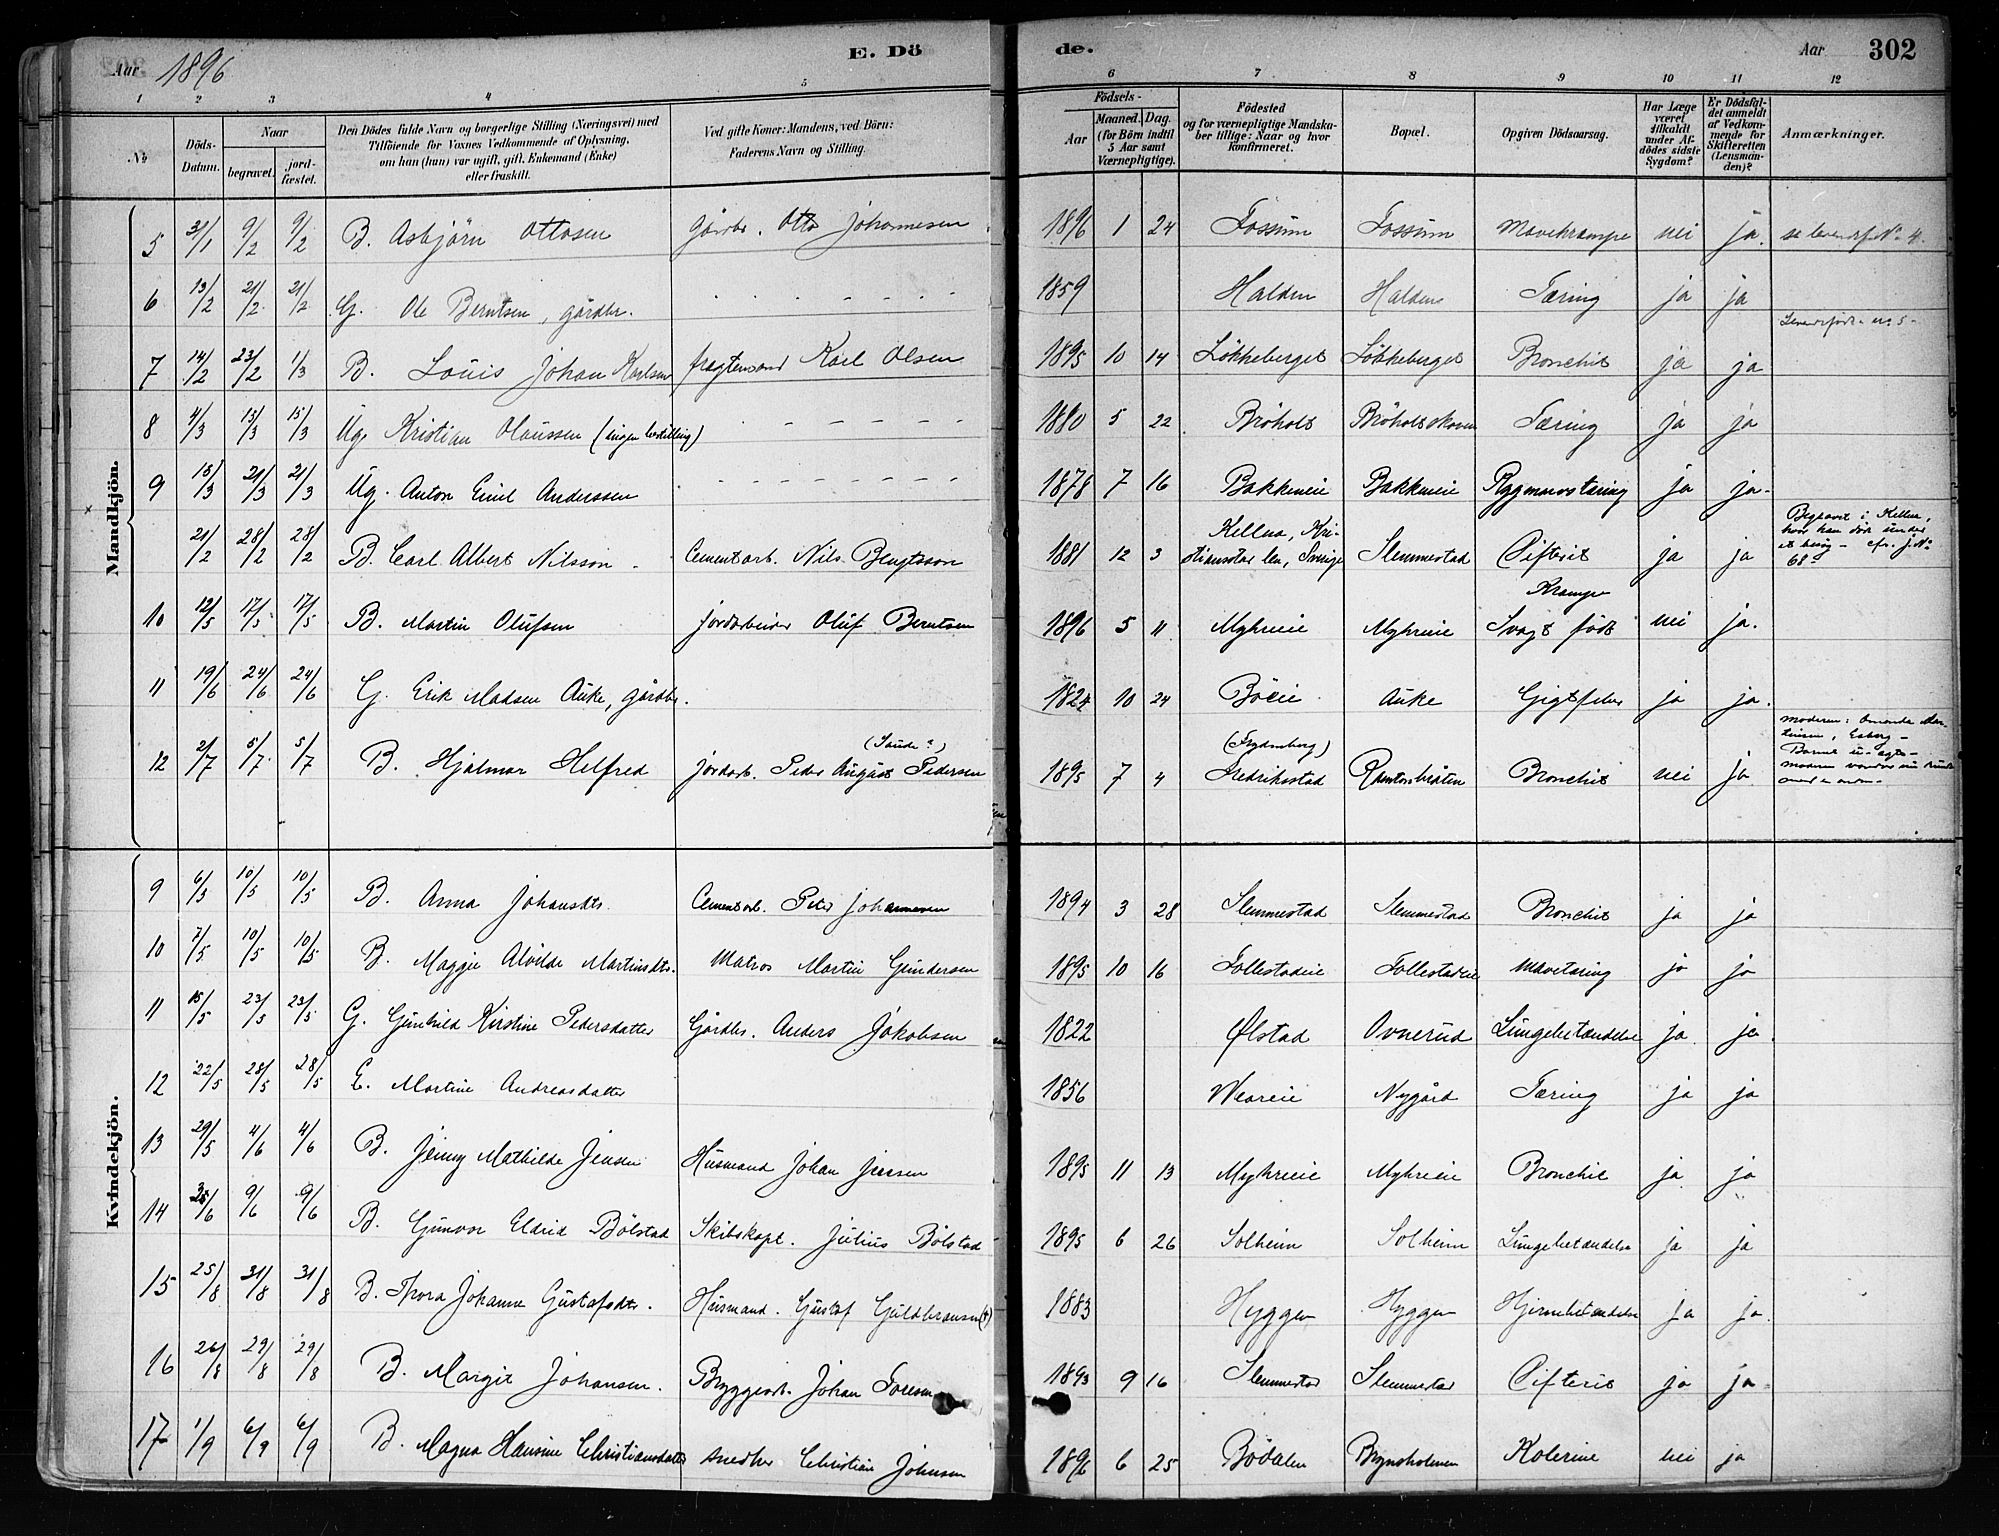 Aar 1896 E. Döde. Aar 302
1 2 3 4 5 6 7 8 9 10 11 12
No
Döds-Datum.
Naar
begravet.
jordfæstet.
Den Dödes fulde Navn og borgerlige Stilling (Næringsvei) med
Tilföiende for Voxnes Vedkommende af Oplysning,
om han (hun) var ugift, gift, Enkemand (Enke)
eller fraskilt.
Ved gifte Koner: Mandens, ved Börn:
Faderens Navn og Stilling.
Födsels-
Aar
Maaned. Dag.
(for Börn indtil
5 Aar samt
Værnepligtige).
Födested
og for værnepligtige Mandskaber
tillige: Naar og hvor
konfirmeret.
Bopæl.
Opgiven Dödsaarsag.
Har Læge været tilkaldt under Afdödes sidste Sygdom?
Er Dödsfaldet anmeldt af Vedkommende for Skifteretten (Lensmanden)?
Anmærkninger.
Mandkjön.
5 31/1 9/2 9/2 B. Asbjörn Ottosen gårdbr. Otto Johannesen 1896 1 24 Fossum Fossum Mavekrampe nei ja. se levendef. No 4.
6 13/2 21/2 21/2 G. Ole Berntsen, gårdbr. 1859 Halden Halden Tæring ja ja
7 14/2 23/2 1/3 B. Louis Johan Karlsen fragtemand Karl Olsen 1895 10 14 Lökkeberget Lökkeberget Bronchit ja ja Levendefødt no 5
8 4/3 15/3 15/3 Ug. Kristian Olaussen (ingen bestilling) 1880 5 22 Bröholt Bröholtskoven Tæring ja ja
9 15/3 21/3 21/3 Ug. Anton Emil Anderssen 1878 7 16 Bakkeneie Bakkeneie Rygmarvstæring ja ja
21/2 28/2 28/2 B. Carl Albert Nilsson Cementarb. Nils Bengtsson 1881 12 3 Kellna, Kristianstad len, Sverige Slemmestad Difterit ja ja Begravet i Kellna, hvor han døde under et besøg - cfr. j. No 68
10 12/5 17/5 17/5 B. Martin Olufsen jordarbeider Oluf Berntsen 1896 5 11 Myhreeie Myhreeie Krampe Svagt född nei ja.
11 19/6 24/6 24/6 G. Erik Madsen Auke, gårdbr. 1824 10 24 Böeie Auke Gigtfeber ja ja.
12 2/7 5/7 5/7 B. Hjalmar Helfred jordarb. Peder August Pedersen (Saude?) 1895 7 4 (Frydenberg) Fredriksstad Bronchit nei ja
Kvindekjön.
9 6/5 10/5 10/5 B. Anna Johansdtr. Cementarb. Peter Johannesen 1894 3 28 Slemmestad Slemmestad Bronchit ja ja
10 7/5 10/5 10/5 B. Maggie Alvilde Martinsdtr. Matros Martin Gundersen 1895 10 16 Follestadeie Follestadeie Mavetæring ja ja
11 15/5 23/5 23/5 G. Gunhild Kirstine Pedersdatter Gårdbr. Anders Jakobsen 1822 Ølstad Ovnerud Lungebetændelse ja ja
12 22/5 28/5 28/5 E. Martine Andreasdatter 1856 Nygård Tæring ja ja
13 29/5 4/6 4/6 B. Jenny Mathilde Jensen Husmand Johan Jensen 1895 11 13 Myhreeie Myhreeie Bronchit ja ja
14 9/6 9/6 B. Gunvor Eldrid Bölstad Skibskapt. Julius Bölstad 1895 6 26 Solheim Solheim Lungebetændelse ja ja
15 25/8 31/8 31/8 B. Thora Johanne Gustafsdtr. Husmand. Gustaf Guldbransen (†) 1883 Hyggen Hyggen Hjernebetændelse ja ja
16 26/8 29/8 29/8 B. Margit Johansen. Bryggearb. Johan Toresen 1893 9 16 Slemmestad Slemmestad Difterit ja ja
17 1/9 6/9 6/9 B. Magna Hansine Christiansdatter snedker Christian Johnsen 1896 6 25 Bödalen Brynsholmen Kolerine nei ja